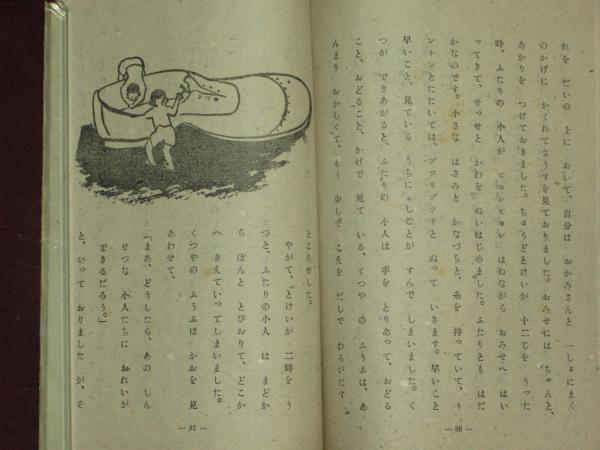 れを だいの 上に おいて、自分は おかみさんと 一しょにまく
のかげに かくれてようすを見ておりました。おみせには ちゃんと、
あかりを つけておきました。ちょうどとけいが 十二じを うった
時、ふたりの 小人が ピョンピョン はねながら おみせへ はい
ってきて、せっせと かわを ぬいはじめました。ふたりとも はだ
かなのです。小さな はさみと かなづちと、糸を 持っていて、ト
ントンとたたいては、プツリプツリと ぬって いきます。早いこと
早いこと、見ている うちに、しごとが すんで しまいました。く
つが できあがると、ふたりの 小人は 手を とりあって、おどる
こと、おどること、かげで 見て いる、くつや の ふうふは、あ
んまり おかしくて、もう 少しで こえを だして わらいだす
… 80 …
ところでした。
やがて、とけいが 二時を う
つと、ふたりの小人 は まどか
ら ぽんと とびおりて、どこか
へ きえていってしまいました。
くつやの ふうふは かおを 見
あわせて、
「まあ、どうしたら、あの しん
せつな 小人たちに おれいが
できるだろう。」
と、いって おりました が、そ
… 81 …